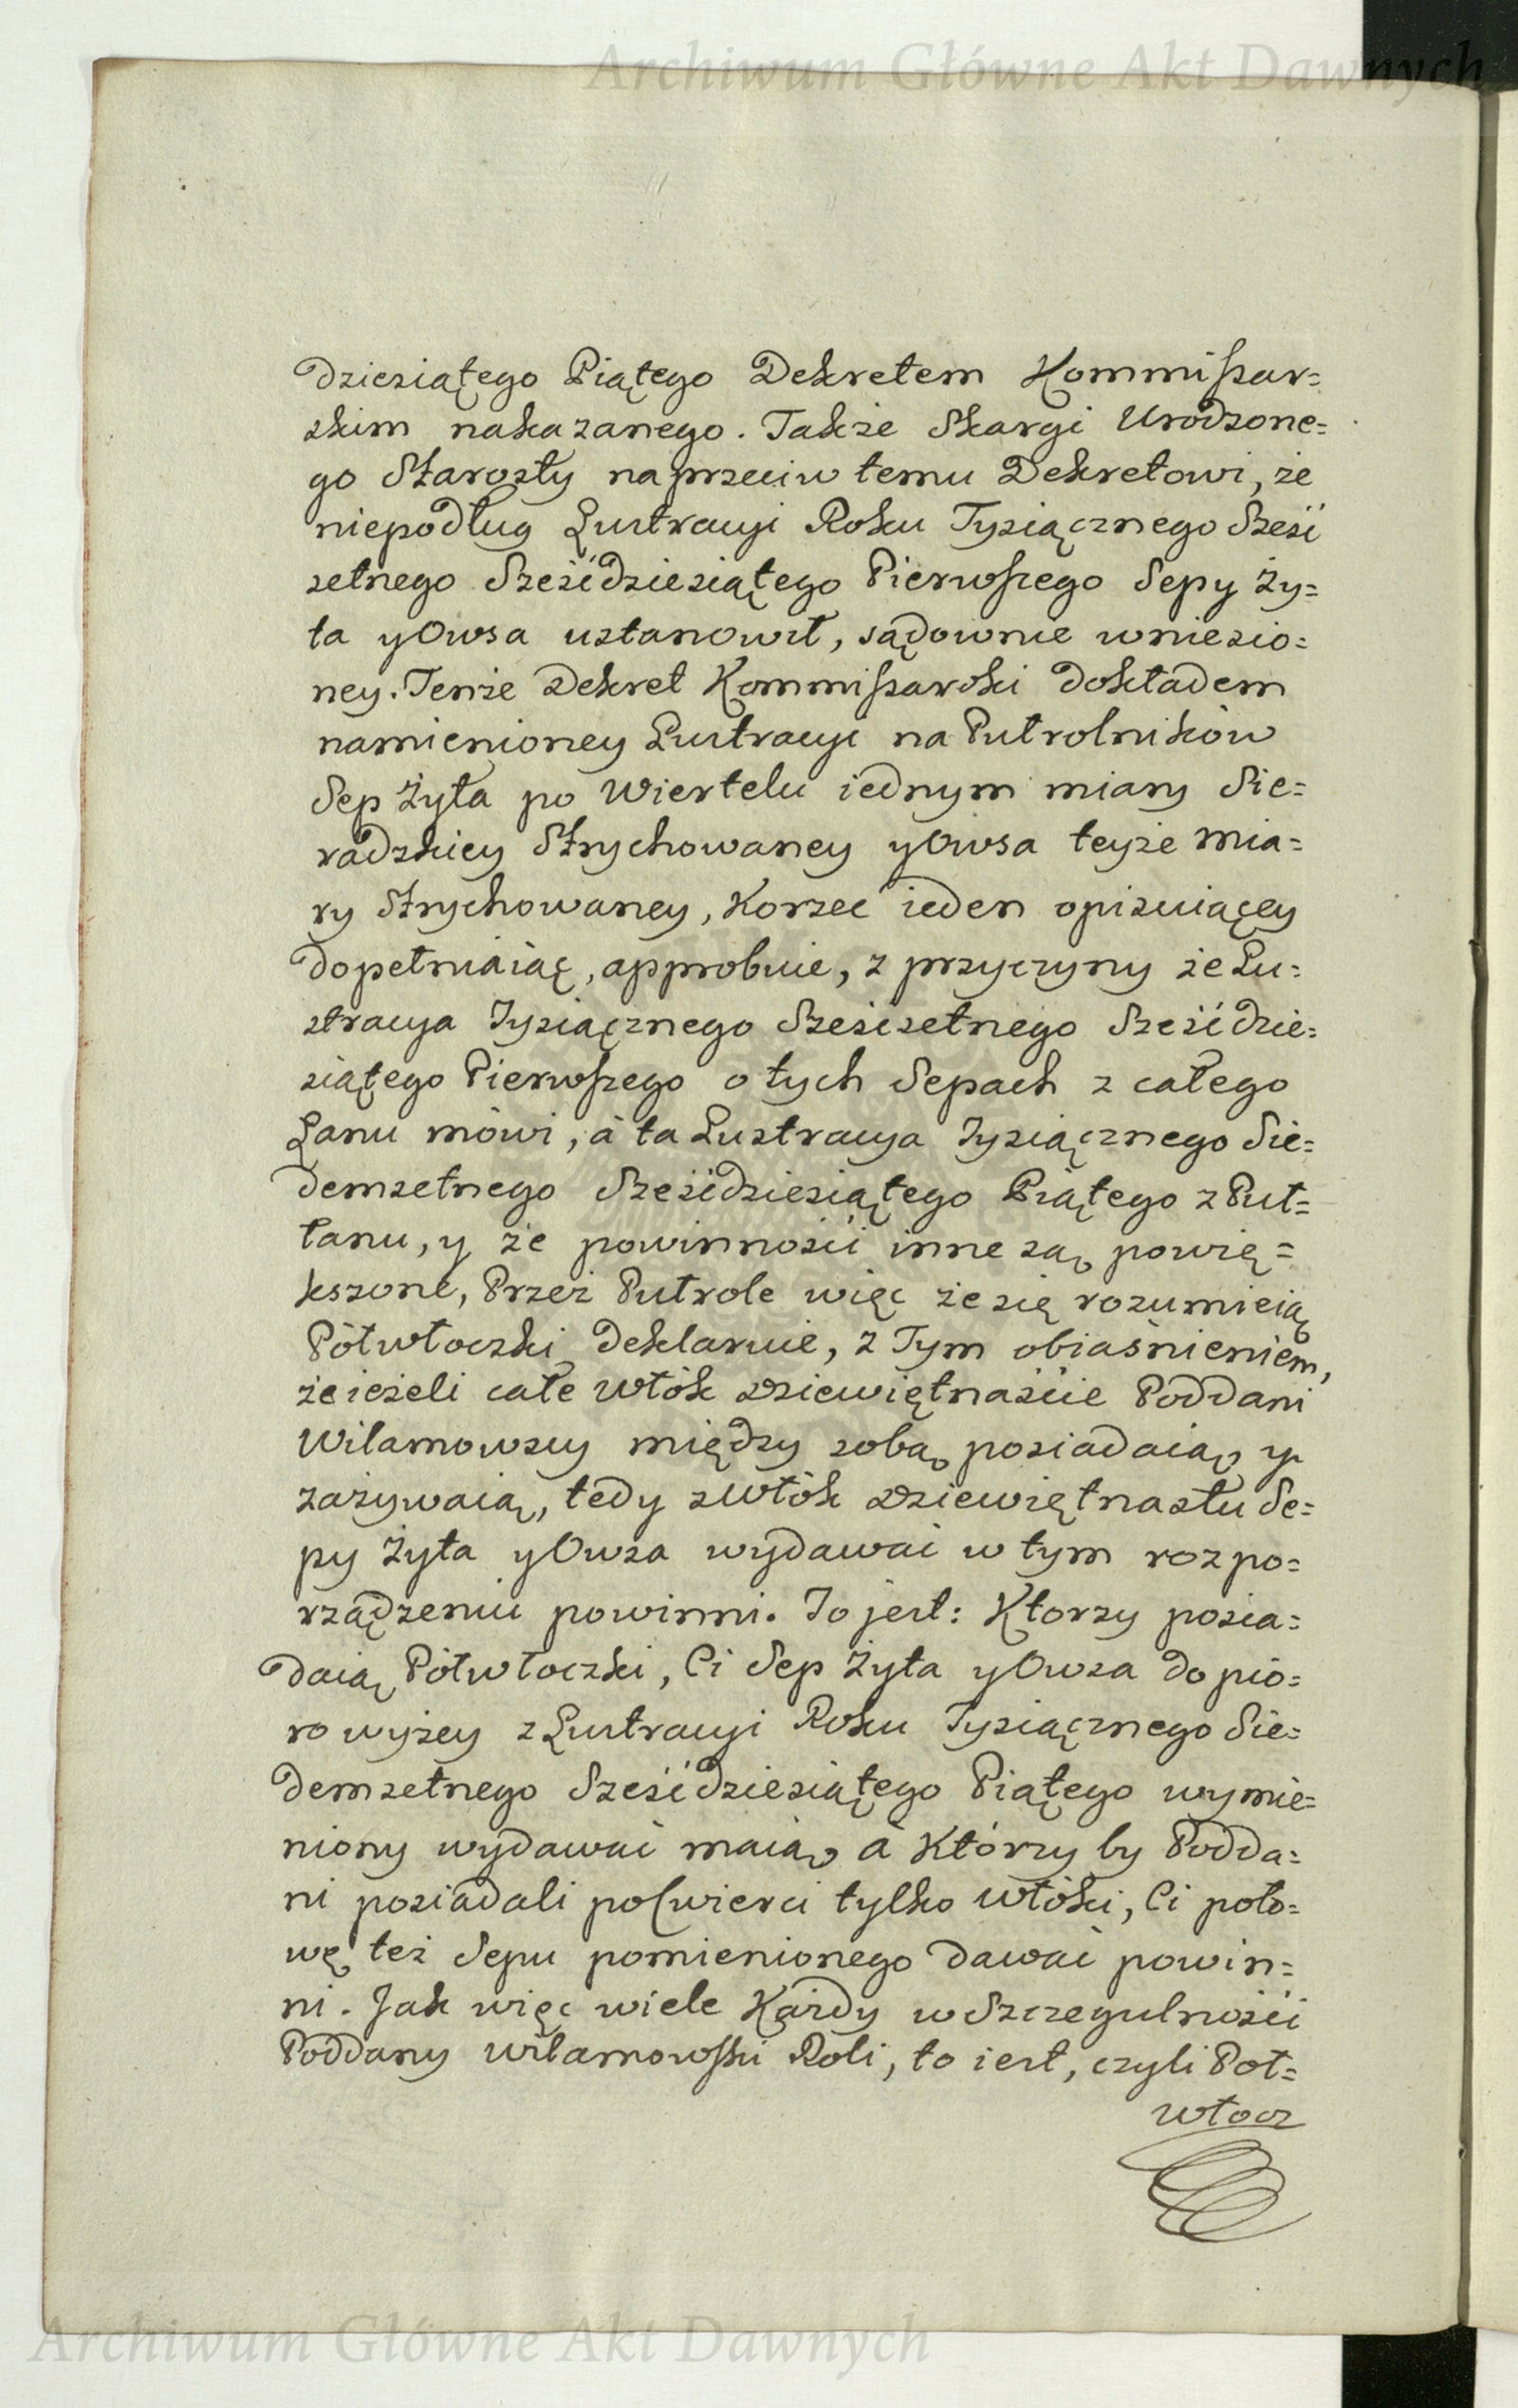 Archiwum Główne Akt Dawnych
dziesiątego Piątego Dekretem Kommissar=
skim nakazanego. Także Skargi Urodzone=
go Starosty naprzeciw temu Dekretowi, że
niepodług Lustracyi Roku Tysiącznego Sześć
setnego Sześćdziesiątego Pierwszego Sepy Ży=
ta y Owsa ustanowił, sądownie wniesio=
ney. Tenże Dekret Kommissarski dokładem
namienioney Lustracyi na Pułrolników
Sep Żyta po Wiertelu iednym miary Sie=
radzkiey Strychowaney y Owsa teyże mia=
ry Strychowaney, Korzec ieden opisuiącey
dopełniaiąc, approbuie, z przyczyny że Lu=
stracya Tysiącznego Sześćsetnego Sześćdzie=
siątego Pierwszego o tych Sepach z całego
Łanu mówi, à ta Lustracya Tysiącznego Sie=
demsetnego Sześćdziesiątego Piątego z Puł=
łanu, y że powinności inne są powię=
kszone, Przez Pułrole więc że się rozumieią
Półwłoczki deklaruie, z Tym obiaśnieniem,
że ieżeli całe Włók dziewiętnaście Poddani
Wilamowscy między sobą posiadaią y
zażywaią, tedy z Włók dziewiętnastu Se=
py Żyta y Owsa wydawać w tym rozpo=
rządzeniu powinni. To jest: Ktorzy posia=
daią Półwłoczki, Ci Sep Żyta y Owsa dopió=
ro wyżey z Lustracyi Roku Tysiącznego Sie=
demsetnego Sześćdziesiątego Piątego wymie=
niony wydawać maią à Którzy by Podda=
ni posiadali po Cwierci tylko Włóki, Ci poło=
wę też Sepu pomienionego dawać powin=
ni. Jak więc wiele Każdy w Szczegulności
Poddany Wilamowski Roli, to iest, czyli Poł=
włocz
Archiwum Główne Akt Dawnych